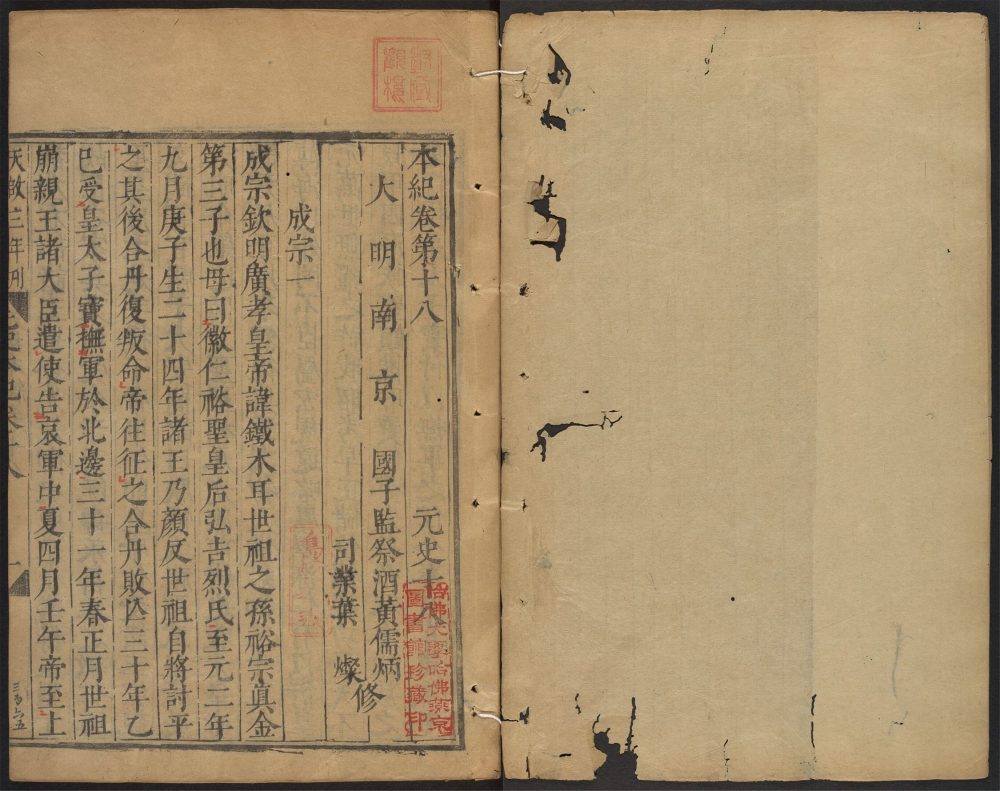 本紀卷第十八　元史十八
大明南京國子監祭酒黃儒炳
司業葉　燦修
成宗一
成宗欽明廣孝皇帝諱鐵木耳世祖之孫裕宗眞金
第三子也母曰徽仁裕聖皇后弘吉烈氏至元二年
九月庚子生二十四年諸王乃顏反世祖自將討平
之其後合丹復叛命帝往征之合丹敗亡三十年乙
巳受皇太子寶撫軍於北邊三十一年春正月世祖
崩親王諸大臣遣使告哀軍中夏四月壬午帝至上
天啟三年刊
元史本紀卷十八
一
三百六五
哈佛大學哈佛燕京
圖書館珍藏印